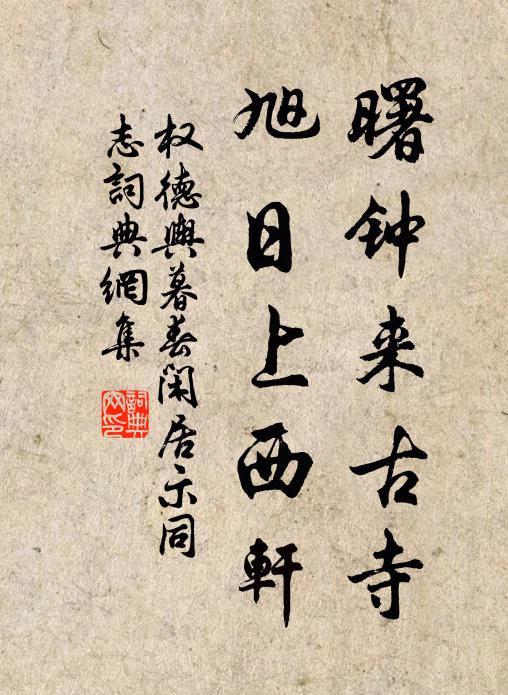 曙钟来古寺
旭日上西軒
权德輿暮春闲居示同
志詞典網集
詞典
网印